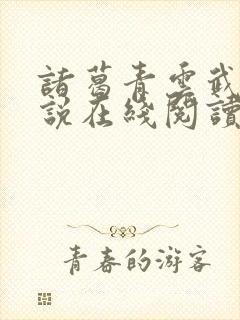 諸葛青雲武
説在綫閱讀
青春的游客